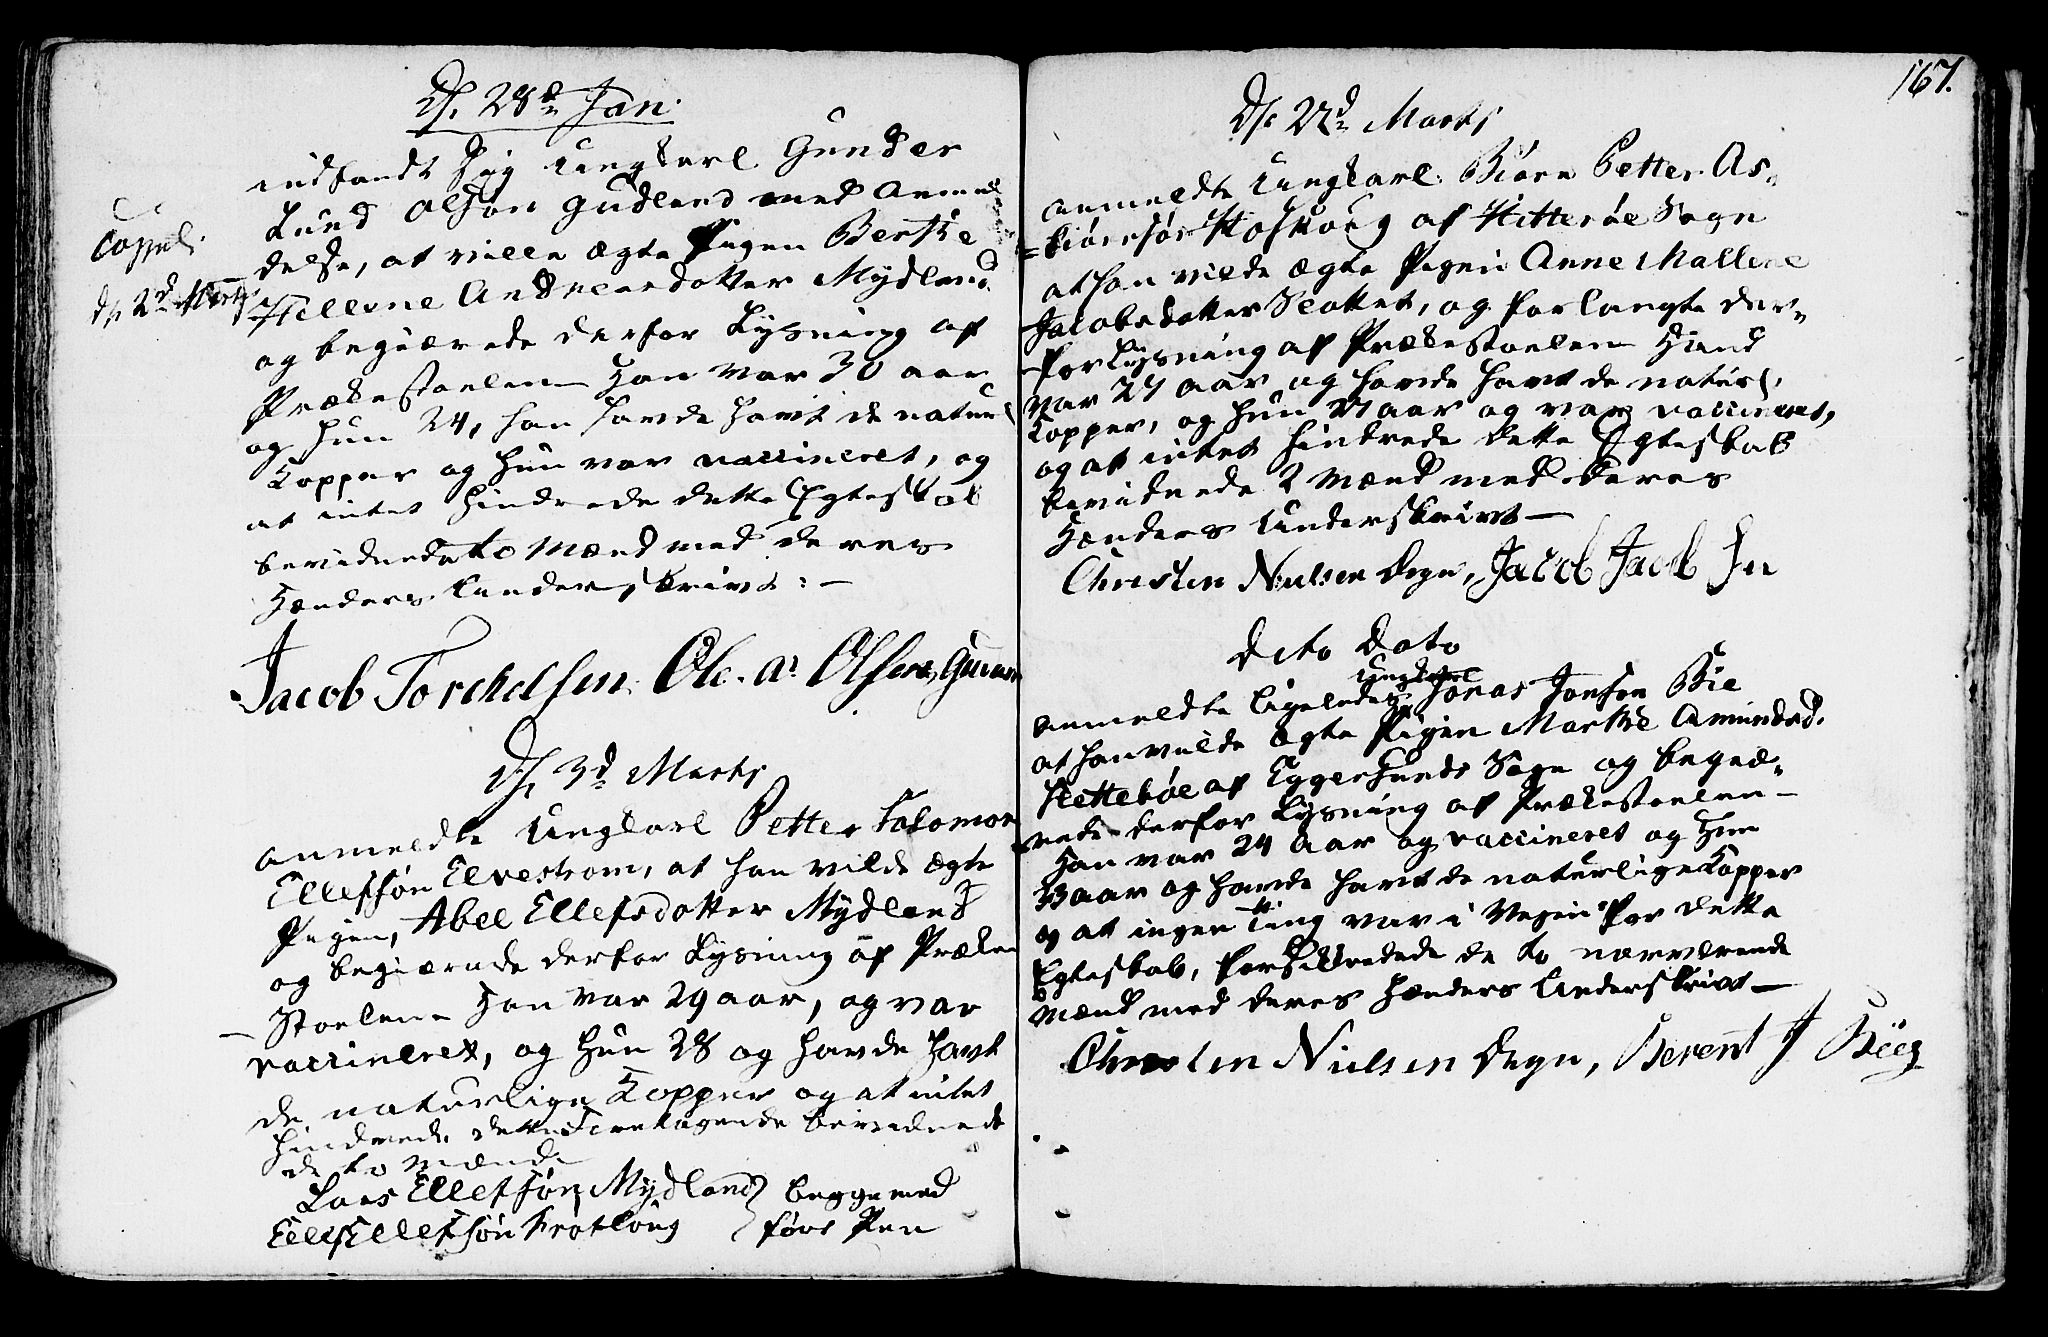 D/. 28de Jan.
indfandt sig Ungkarl Gunder
Lund Olsøn Gudland med Anmel
delse, at ville ægte Pigen Berthe
Copul.
d/. 2d
Hellene Andreasdatter Mydland
og begiærede derfor Lysning af
Prækestoelen Han var 30 aar
og hun 24, han havde havt de naturl
Kopper og hun var vaccineret, og
at intet hindrede dette Egteskab
bevidnede to Mænd med deres
Hænders Underskrivt: —
Jacob Torchelsen. Ole. a. Olsen,
D/. 3d Marts
anmeldte Ungkarl Petter Salomon
Ellefsøn Elvestrom, at han vilde ægte
Pigen, Abel Ellefsdatter Mydland
og begiærede derfor Lysning af Præke
— Stoelen Han var 29 aar, og var
vaccineret, og hun 28 og havde havt
de naturlige Kopper og at intet
hindrede dette Foretagende bevidnede
de to Mænd
Lars Ellefsøn Mydland } begge med
Ellef Ellefsøn } ført Pen
167.
D/. 22d Marts
anmeldte Ungkarl Biørn Petter As=
=biørnsøn af Hitterøe Sogn
at han vilde ægte Pigen Anne Mallene
Jacobsdatter Slottet, og forlangte der=
for Lysning af Prækestoelen Hand
var 27 aar og havde havt de naturl.
Kopper, og hun 27 aar og var vaccineret,
og at intet hindrede dette Egteskab
bevidnede 2 Mænd med deres
Hænders Underskrivt —
Christen Nielsen Degn, Jacob Jacob
Dito Dato
anmeldte ligeledes Ungkarl Jonas Jonsen Bie
at han vilde ægte Pigen Marthe Amundsd.
Slettebøe af Eggersunds Sogn og begiæ=
rede derfor Lysning af Prækestoelen —
Han var 24 Aar og vaccineret og Hun
aar og havde havt de naturlige Kopper
og at ingen ting var i Veyen for dette
Egteskab, de to nærværende
Mænd med deres Hænders Underskrivt —
Christen Nielsen Degn, Berent J